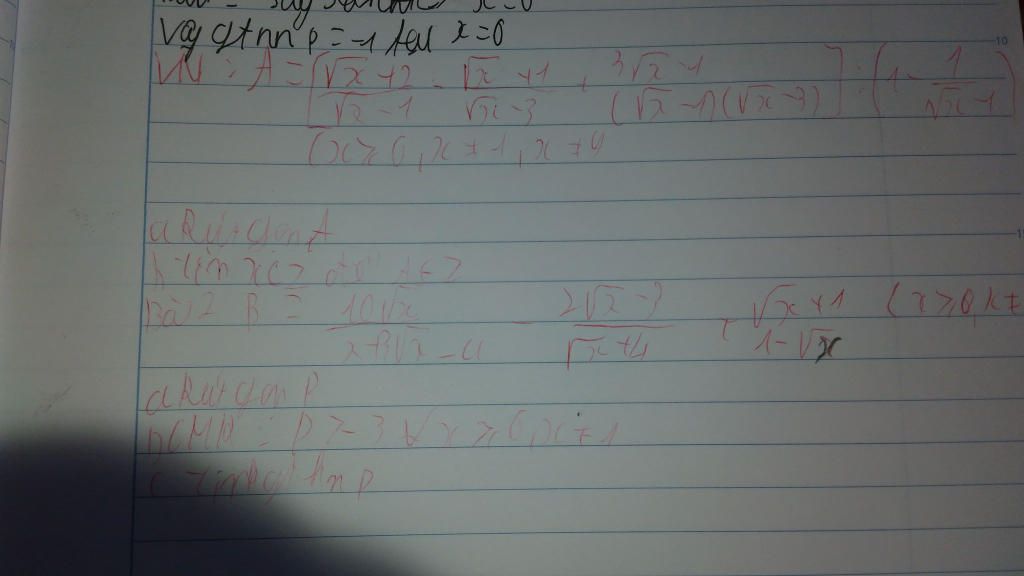 Vậy gtnn p = -1 tại x = 0
VN : A = [(√x + 2)/(√x - 1) - (√x + 1)/(√x - 3) + (3√x - 1)/((√x - 1)(√x - 3))] : (1 - 1/(√x - 1))
(x ≥ 0, x ≠ 1, x ≠ 9
a Rút gọn A
b tìm x ∈ Z để A ∈ Z
Bài 2 B = (10√x)/(x + 3√x - 4) - (2√x - 3)/(√x + 4) + (√x + 1)/(1 - √x) (x ≥ 0, x ≠
a Rút gọn P
b CMR : P > -3 ∀ x ≥ 0, x ≠ 1
c tìm gtln p